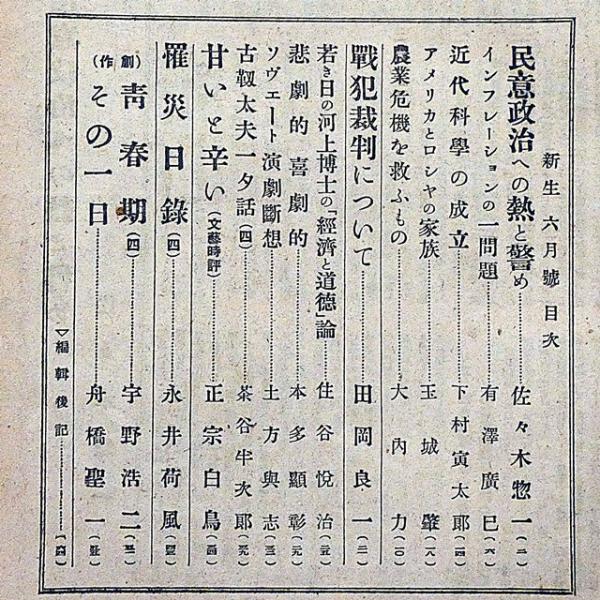 新生 六月號 目次
民意政治への熱と警め……佐々木惣一(二)
インフレーションの一問題……有澤廣巳(六)
近代科學の成立……下村寅太郎(一四)
アメリカとロシヤの家族……玉城肇(一八)
農業危機を救ふもの……大內力(二〇)
戰犯裁判について……田岡良一
若き日の河上博士の「經濟と道德」論……住谷悅治
悲劇的喜劇的……本多顯彰
ソヴェート演劇斷想……土方與志
古靱太夫一夕話(四)……茶谷半次郞
甘いと辛い(文藝時評)……正宗白鳥
罹災日錄(四)……永井荷風
(創作)靑春期(四)……宇野浩二
その一日……舟橋聖一
▽編輯後記……